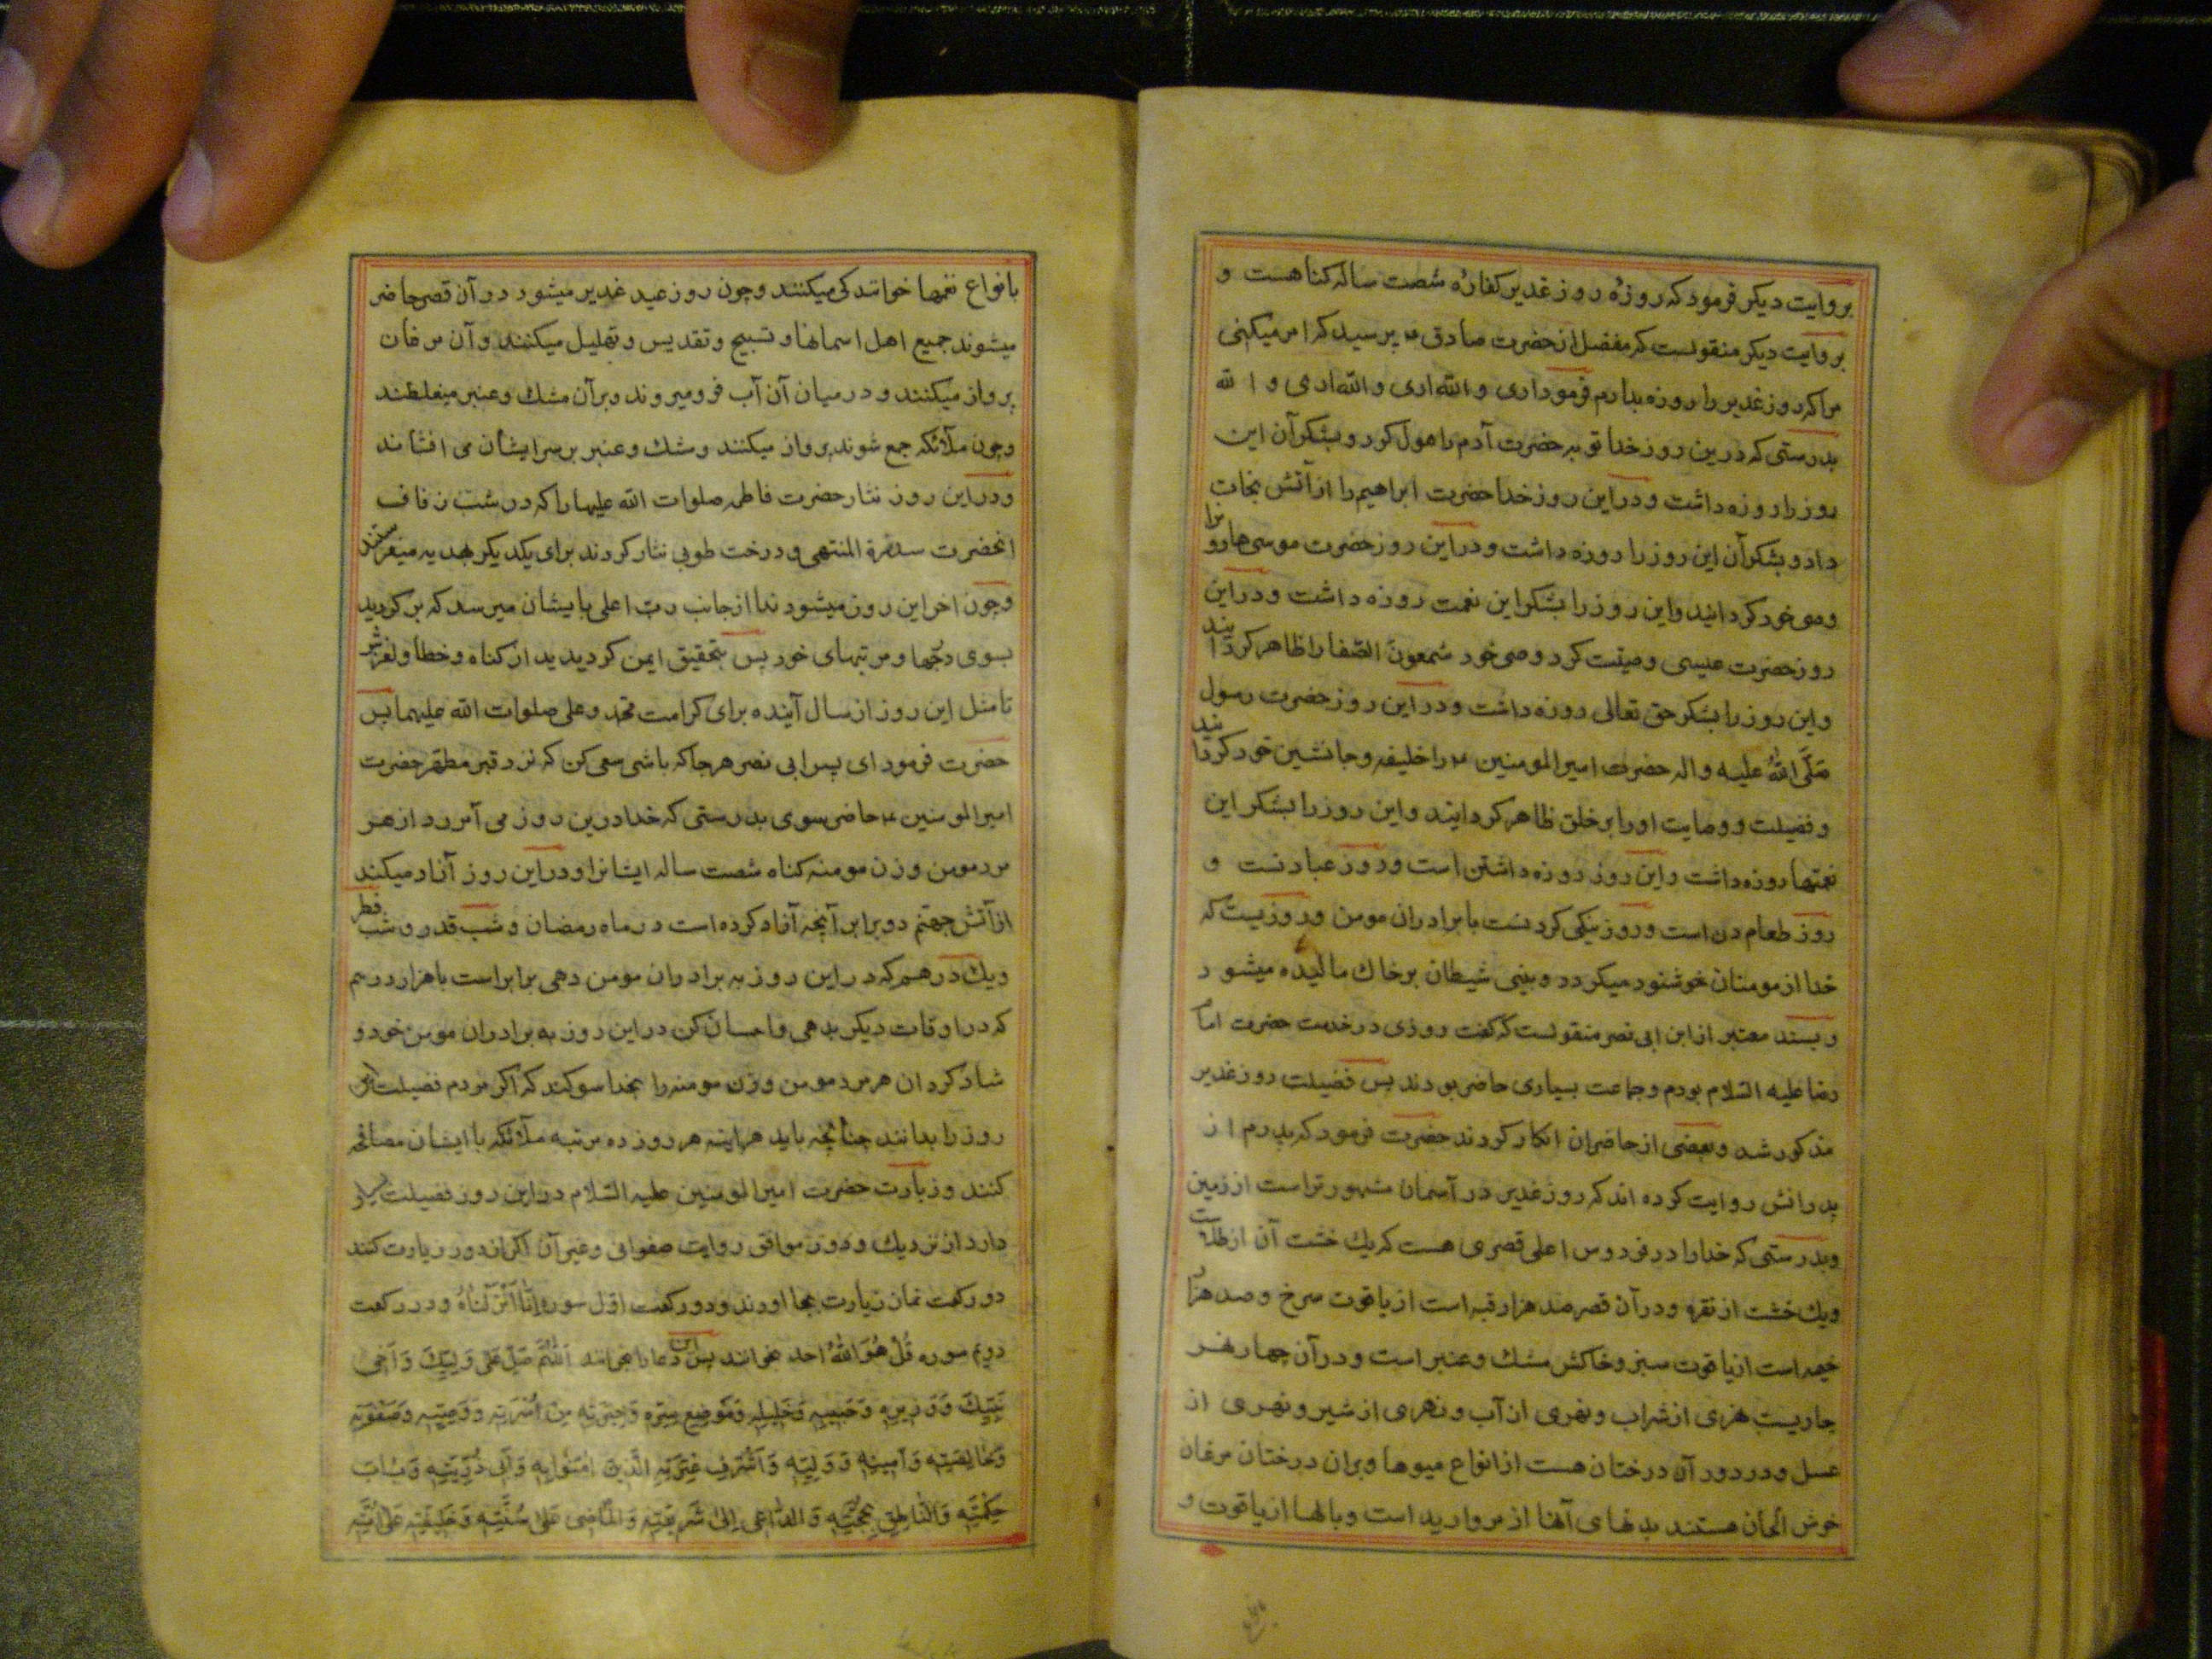 بروایت دیکر فرمود که روزه روز غدیر کفاره شصت ساله کناهست و
بروایت دیکر منقولست که مفضل از حضرت صادق ع پرسید که امر میکنی
مرا که روز غدیر را روزه بدارم فرمود اری والله اری والله اری و الله
بدرستی که درین روز خدا توبه حضرت آدم را قبول کرد و بشکر آن این
روز را روزه داشت و در این روز خدا حضرت ابراهیم را از آتش نجات
داد و بشکر آن این روز را روزه داشت و در این روز حضرت موسی هارو نرا
وصی خود کردانید و این روز را بشکر این نعمت روزه داشت و در این
روز حضرت عیسی وصیت کرد و وصی خود شمعون الصفا را ظاهر کردانید
و این روز را بشکر حق تعالی روزه داشت و در این روز حضرت رسول
صلی الله علیه واله حضرت امیر المومنین ع را خلیفه و جانشین خود کردانید
و فضیلت و وصایت او را بر خلق ظاهر کردانید و این روز را بشکر این
نعمتها روزه داشت و این روز روزه داشتن است و روز عبادتست و
روز طعام دادن است و روز نیکی کردنست با برادران مومن و روزیست که
خدا از مومنان خوشنود میکردد و بینی شیطان بر خاك مالیده میشود
و بسند معتبر از ابن ابی نصر منقولست که کفت روزی در خدمت حضرت امام
رضا علیه السلام بودم و جماعت بسیاری حاضر بودند پس فضیلت روز غدیر
مذکور شد و بعضی از حاضران انکار کردند حضرت فرمود که پدرم از
پدرانش روایت کرده اند که روز غدیر در آسمان مشهور تر است از زمین
و بدرستی که خدا را در فردوس اعلی قصری هست که یك خشت آن از طلاست
و یك خشت از نقره و در آن قصر صد هزار قبه است از یاقوت سرخ و صد هزار
خیمه است از یاقوت سبز و خاکش مشك و عنبر است و در آن چهار نهر
جاریست نهری از شراب و نهری از آب و نهری از شیر و نهری از
عسل و در دور آن درختان هست از انواع میوها و بران درختان مرغان
خوش الحان هستند بدنهای آنها از مروارید است و بالها از یاقوت و
بانواع نغمها خوانندکی میکنند و چون روز عید غدیر میشود در آن قصر حاضر
میشوند جمیع اهل اسمانها و تسبیح و تقدیس و تهلیل میکنند و آن مرغان
پرواز میکنند و در میان آن آب فرو میروند و بر آن مشك و عنبر میغلطند
و چون ملائکه جمع شوند پرواز میکنند و مشك و عنبر بر سر ایشان می افشانند
و در این روز نثار حضرت فاطمه صلوات الله علیها را که در شب زفاف
انحضرت سدرة المنتهی و درخت طوبی نثار کردند برای یکدیکر بهدیه میفرستند
و چون اخر این روز میشود ندا از جانب رب اعلی بایشان میرسد که بر کردید
بسوی درجها و مرتبهای خود پس بتحقیق ایمن کردیدید از کناه و خطا و لغزش
تا مثل این روز از سال آینده برای کرامت محمد و علی صلوات الله علیهما پس
حضرت فرمود ای پسر ابی نصر هر جا که باشی سعی کن که نزد قبر مطهر حضرت
امیر المومنین ع حاضر سوی بدرستی که خدا درین روز می آمرزد از هر
مرد مومن و زن مومنه کناه شصت ساله ایشانرا و در این روز آزاد میکند
از آتش جهنم دو برابر آنچه آزاد کرده است در ماه رمضان و شب قدر و شب فطر
و یك درهم که در این روز به برادران مومن دهی برابر است با هزار درهم
که در اوقات دیکر بدهی و احسان کن در این روز به برادران مومن خود و
شاد کردان هر مرد مومن و زن مومنه را بخدا سوکند که اکر مردم فضیلت این
روز را بدانند چنانچه باید هراینه هر روز ده مرتبه ملائکه با ایشان مصافحه
کنند و زیارت حضرت امیر المومنین علیه السلام در این روز فضیلت بسیار
دارد از نزدیك و دور موافق روایت صفوانی و غیر آن اکر از دور زیارت کنند
دو رکعت نماز زیارت بجا اورند و در رکعت اول سوره اِنّا اَنْزَلْناهُ و در رکعت
دویم سوره قُلْ هُوَ اللهُ احد بخوانند پس این دعا را بخوانند اَللّهُمَّ صَلِّ عَلی وَلِیِّكَ وَ اَخی
نَبِیِّكَ وَ وَزیرِهِ وَ حَبیبِهِ وَ خَلیلِهِ وَ مَوْضِعِ سِرِّهِ وَ خِیَرَتِهِ مِنْ اُسْرَتِهِ وَ وَصِیِّهِ وَ صَفْوَتِهِ
وَ خالِصَتِهِ وَ اَمینِهِ وَ وَلِیِّهِ وَ اَشْرَفِ عِتْرَتِهِ الَّذینَ امَنُوا بِهِ وَ اَبی ذُرِّیَّتِهِ وَ بابِ
حِکْمَتِهِ وَ النّاطِقِ بِحُجَّتِهِ وَ الدّاعی اِلی شَریعَتِهِ وَ الْماضی عَلی سُنَّتِهِ وَ خَلیفَتِهِ عَلی اُمَّتِهِ